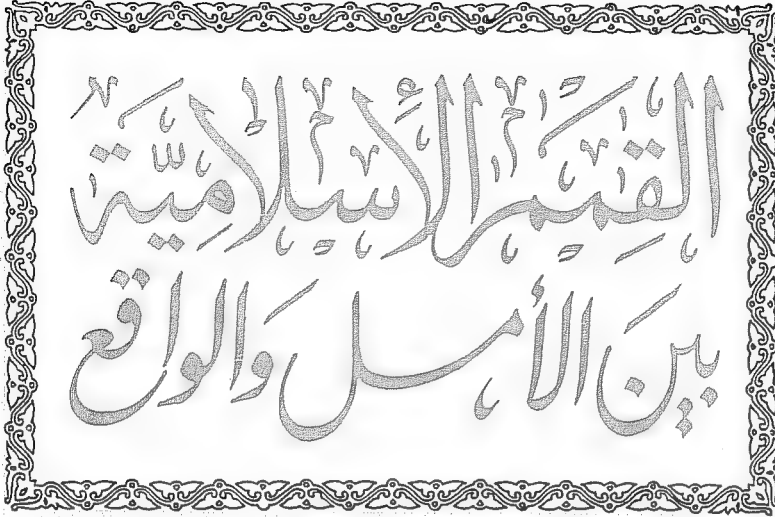 القِيَم الأِسلاميّة
بين الأمل والواقع